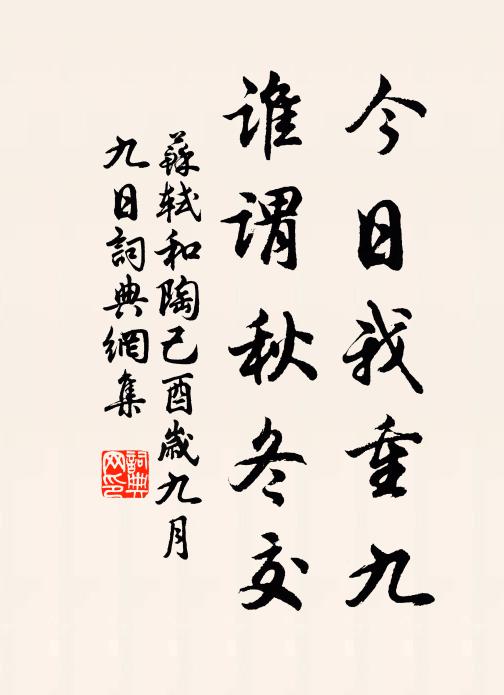 今日我重九
谁謂秋冬交
蘇軾和陶己酉歲九月
九日詞典網集
詞典
网印